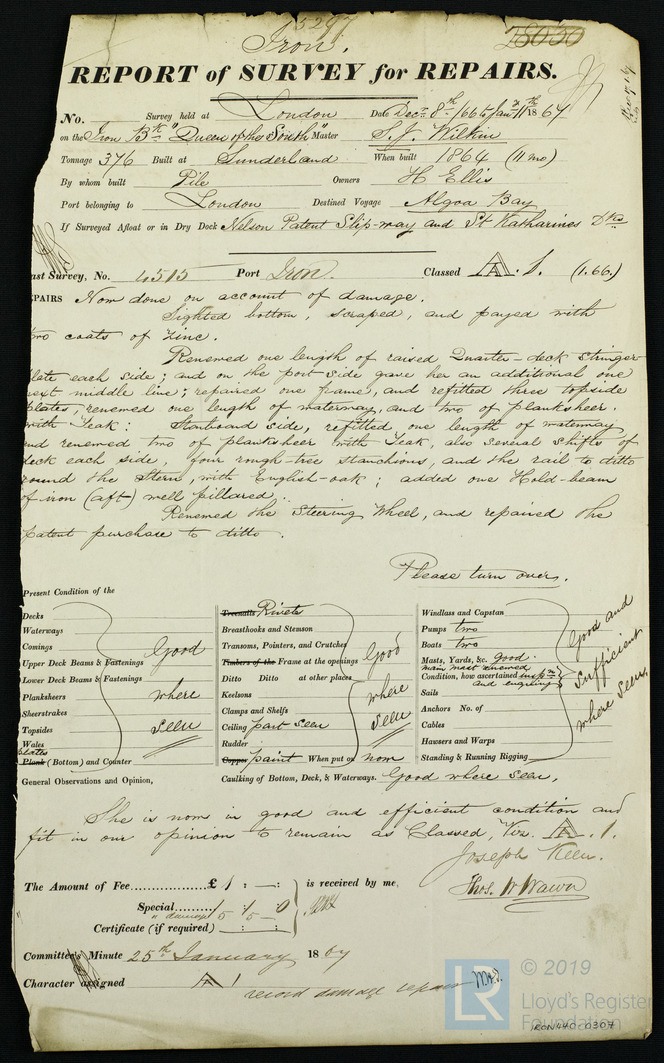 5297
25030
Iron.
REPORT of SURVEY for REPAIRS.
No. Survey held at London Date Decr. 8th /66 to Jany 11th 1867
on the Iron Bk "Queen of the South" Master S. J. Wilkin
Tonnage 376 Built at Sunderland When built 1864 (11 mo)
By whom built Pile Owners H Ellis
Port belonging to London Destined Voyage Algoa Bay
If Surveyed Afloat or in Dry Dock Nelson Patent Slip-way and St Katharines Dks
ast Survey, No. 4515 Port Iron. Classed A. 1. (1.66.)
EPAIRS Now done on account of damage.
Sighted bottom, scraped, and payed with
two coats of zinc.
Renewed one length of raised Quarter-deck stringer
plate each side; and on the port side gave her an additional one
next middle line; repaired one frame, and refitted three topside
plates, renewed one length of waterway, and two of planksheer.
with Teak: Starboard side, refitted one length of waterway
and renewed two of planksheer with Teak, also several shifts of
deck each side, four rough-tree stanchions, and the rail to ditto
round the Stern, with English-oak; added one Hold-beam
of iron (aft) well pillared.
Renewed the Steering Wheel, and repaired the
patent purchase to ditto.
Please turn over.
Present Condition of the
Decks
Waterways
Comings
Upper Deck Beams & Fastenings
Lower Deck Beams & Fastenings
Planksheers
Sheerstrakes
Topsides
Wales
plates
Plank (Bottom) and Counter
Good
where
seen
Treenails Rivets
Breasthooks and Stemson
Transoms, Pointers, and Crutches
Timbers of the Frame at the openings
Ditto Ditto at other places
Keelsons
Clamps and Shelfs
Ceiling part seen
Rudder
Copper paint When put on now
Good
where
seen
Windlass and Capstan
Pumps two
Boats two
Masts, Yards, &c. good.
main mast renewed
Condition, how ascertained inspn
and enquiry
Sails
Anchors No. of
Cables
Hawsers and Warps
Standing & Running Rigging
Good and
sufficient
where seen,
General Observations and Opinion, Caulking of Bottom, Deck, & Waterways. Good where seen,
She is now in good and efficient condition and
fit in our opinion to remain as Classed, Viz. A. 1.
Joseph Keen.
Thos. W Wawn
The Amount of Fee £ 1 : — : is received by me,
Special 1 : 1 : 0
" damage 5 5
Certificate (if required)
Committee's Minute 25th January 1867
Character assigned A 1
record damage repair
LR
© 2019
Lloyd's Register
Foundation
IRON440-0307